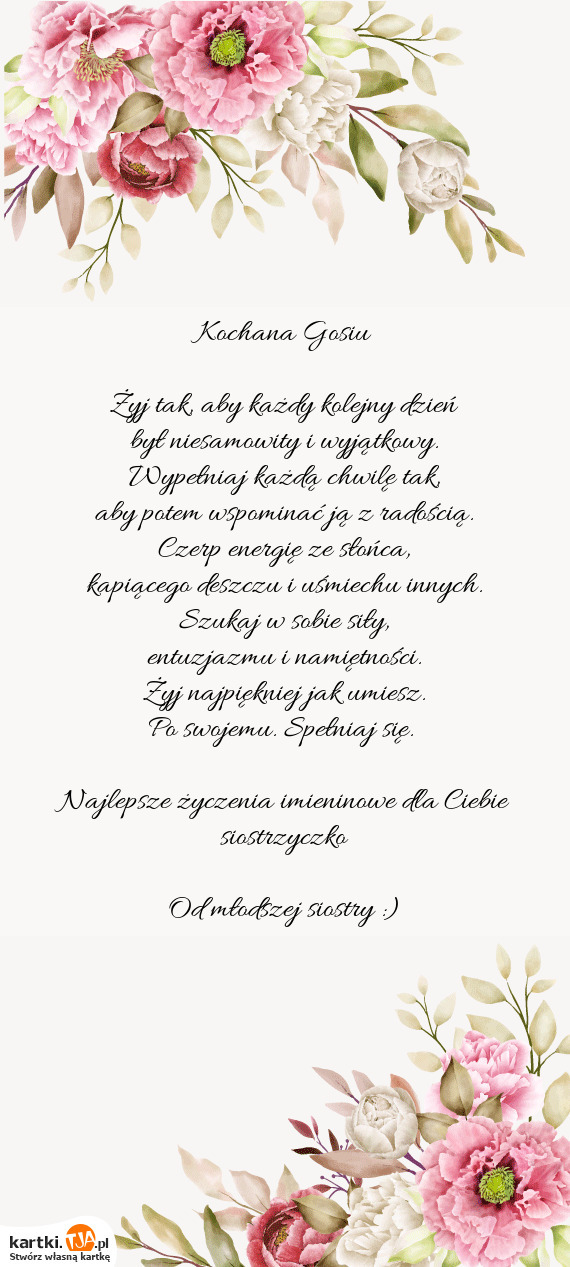 Kochana Gosiu
Żyj tak, aby każdy kolejny dzień
był niesamowity i wyjątkowy.
Wypełniaj każdą chwilę tak,
aby potem wspominać ją z radością.
Czerp energię ze słońca,
kapiącego deszczu i uśmiechu innych.
Szukaj w sobie siły,
entuzjazmu i namiętności.
Żyj najpiękniej jak umiesz.
Po swojemu. Spełniaj się.
Najlepsze życzenia imieninowe dla Ciebie
siostrzyczko
Od młodszej siostry :)
kartki.TJA.pl
Stwórz własną kartkę